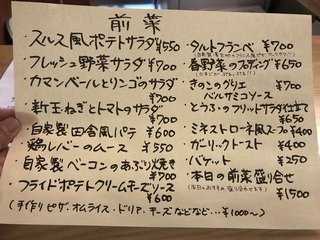 前菜
・スルス風ポテトサラダ ¥550
・フレッシュ野菜サラダ ¥700
・カマンベールとリンゴのサラダ ¥700
・新玉ねぎとトマトのサラダ ¥700
・自家製田舎風パテ ¥600
・鶏レバーのムース ¥550
・自家製ベーコンのあぶり焼き ¥700
・フライドポテトクリームチーズソース ¥600
(手作りピザ、オムライス・ドリア、チーズなどなど…¥1000〜)
・タルトフランベ ¥700
・春野菜のプディング ¥650
・きのこのグリエ バルサミコソース ¥700
・とうふのフリットサラダ仕立て ¥650
・ミネストローネ風スープ ¥400
・ガーリックトースト ¥400
・バゲット ¥250
・本日の前菜盛り合せ ¥1500